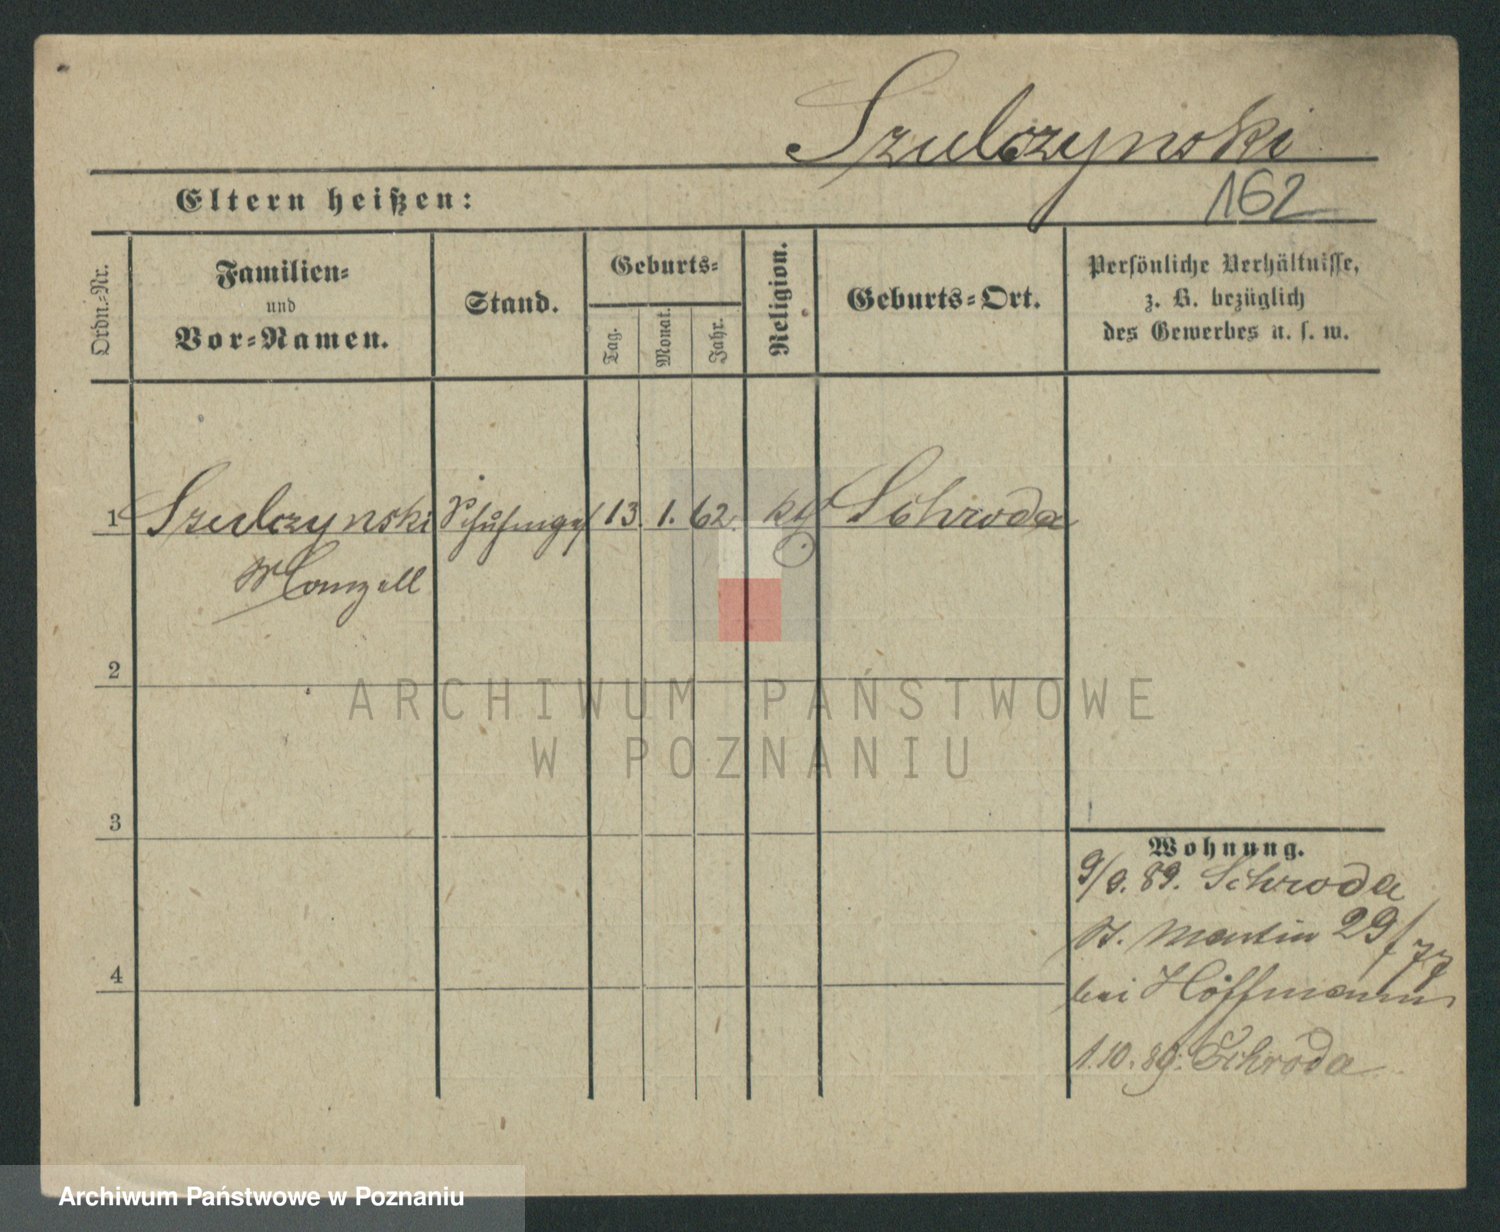 Szulczynski
Eltern heißen:
162
Ordn.-Nr.
Familien-
und
Vor-Namen.
Stand.
Geburts-
Tag.
Monat.
Jahr.
Religion.
Geburts-Ort.
Persönliche Verhältnisse,
z. B. bezüglich
des Gewerbes u. s. w.
1 Szulczynski 13. 1. 62. kth Schroda
2
3
4
Wohnung.
9/9. 89. Schroda
St. Martin 29/
bei Höffmann
1.10.89. Schroda
ARCHIWUM PAŃSTWOWE
W POZNANIU
Archiwum Państwowe w Poznaniu